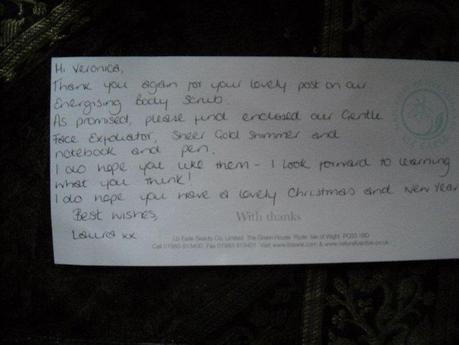 Hi Veronica,
Thank you again for your lovely post on our
Energising Body Scrub.
As promised, please find enclosed our Gentle
Face Exfoliator, Sheer Gold Shimmer and
notebook and pen.
I do hope you like them - I look forward to learning
what you think!
I do hope you have a lovely Christmas and New Year
Best wishes,
Laura xx
With thanks
Beauty Co. Limited The Green House Ryde Isle of Wight